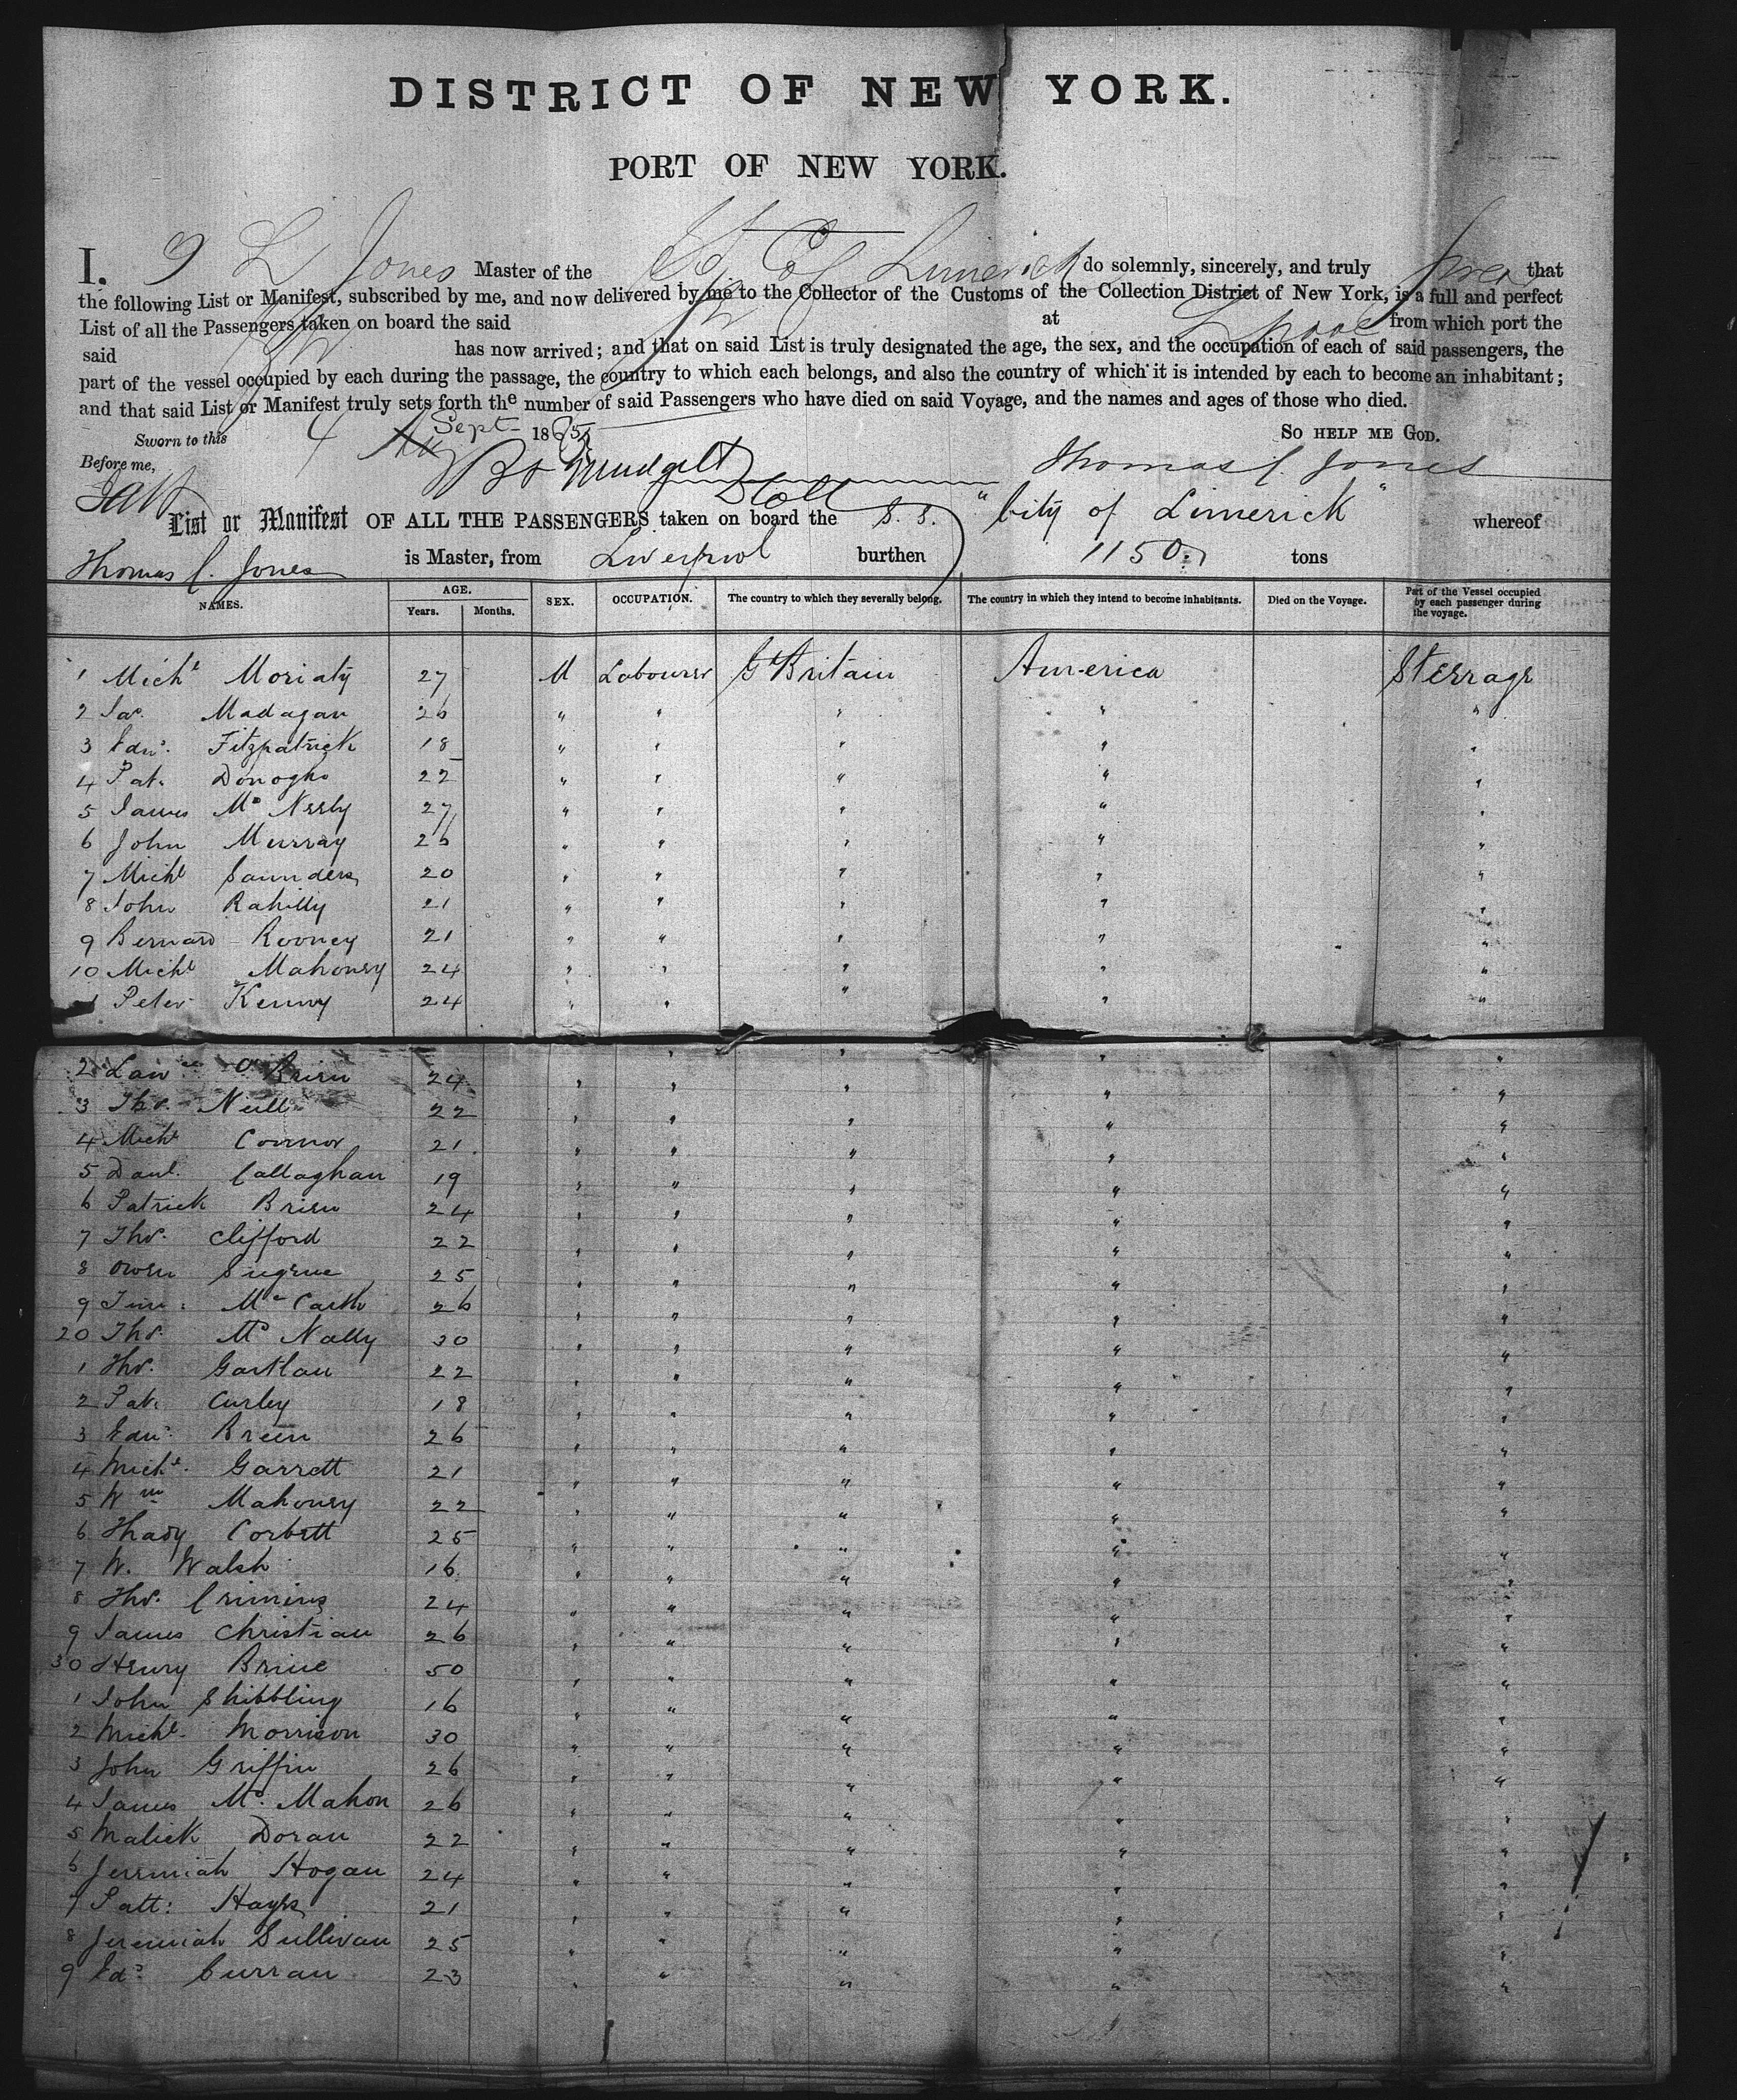 DISTRICT OF NEW YORK.
PORT OF NEW YORK.
I. T L Jones Master of the SS C of Limerick do solemnly, sincerely, and truly swear that
the following List or Manifest, subscribed by me, and now delivered by me to the Collector of the Customs of the Collection District of New York, is a full and perfect
List of all the Passengers taken on board the said at L'pool from which port the
said has now arrived; and that on said List is truly designated the age, the sex, and the occupation of each of said passengers, the
part of the vessel occupied by each during the passage, the country to which each belongs, and also the country of which it is intended by each to become an inhabitant;
and that said List or Manifest truly sets forth the number of said Passengers who have died on said Voyage, and the names and ages of those who died.
Sworn to this 4 Sept 1865 SO HELP ME GOD.
Before me, Thomas C. Jones
List or Manifest OF ALL THE PASSENGERS taken on board the S. S. "City of Limerick" whereof
Thomas C. Jones is Master, from Liverpool burthen 1150 tons
NAMES. AGE. Years. Months. SEX. OCCUPATION. The country to which they severally belong. The country in which they intend to become inhabitants. Died on the Voyage. Part of the Vessel occupied by each passenger during the voyage.
1 Michl Moriaty 27 M Labourer Gt Britain America Steerage
2 Jas. Madagan 26 " " " " "
3 Edwd. Fitzpatrick 18 " " " " "
4 Pat. Donogho 22 " " " " "
5 James Mc Neely 27 " " " " "
6 John Murray 26 " " " " "
7 Michl Saunders 20 " " " " "
8 John Rahilly 21 " " " " "
9 Bernard Rooney 21 " " " " "
10 Michl Mahoney 24 " " " " "
1 Peter Kenny 24 " " " " "
2 Lawce O'Brien 24 " " " " "
3 Thos. Neill 22 " " " " "
4 Michl Connor 21 " " " " "
5 Danl. Callaghan 19 " " " " "
6 Patrick Brien 24 " " " " "
7 Thos. Clifford 22 " " " " "
8 Owen Sugrue 25 " " " " "
9 Tim: Mc Carth 26 " " " " "
20 Thos. Mc Nally 30 " " " " "
1 Thos. Gartlan 22 " " " " "
2 Pat. Curley 18 " " " " "
3 Edwd. Breen 26 " " " " "
4 Michl. Garrett 21 " " " " "
5 Wm Mahoney 22 " " " " "
6 Thady Corbett 25 " " " " "
7 W. Walsh 16 " " " " "
8 Thos. Crimins 24 " " " " "
9 James Christian 26 " " " " "
30 Henry Brine 50 " " " " "
1 John Shibbling 16 " " " " "
2 Michl. Morrison 30 " " " " "
3 John Griffin 26 " " " " "
4 James Mc. Mahon 26 " " " " "
5 Malick Doran 22 " " " " "
6 Jeremiah Hogan 24 " " " " "
7 Patt: Hayes 21 " " " " "
8 Jeremiah Sullivan 25 " " " " "
9 Edd. Curran 23 " " " " "